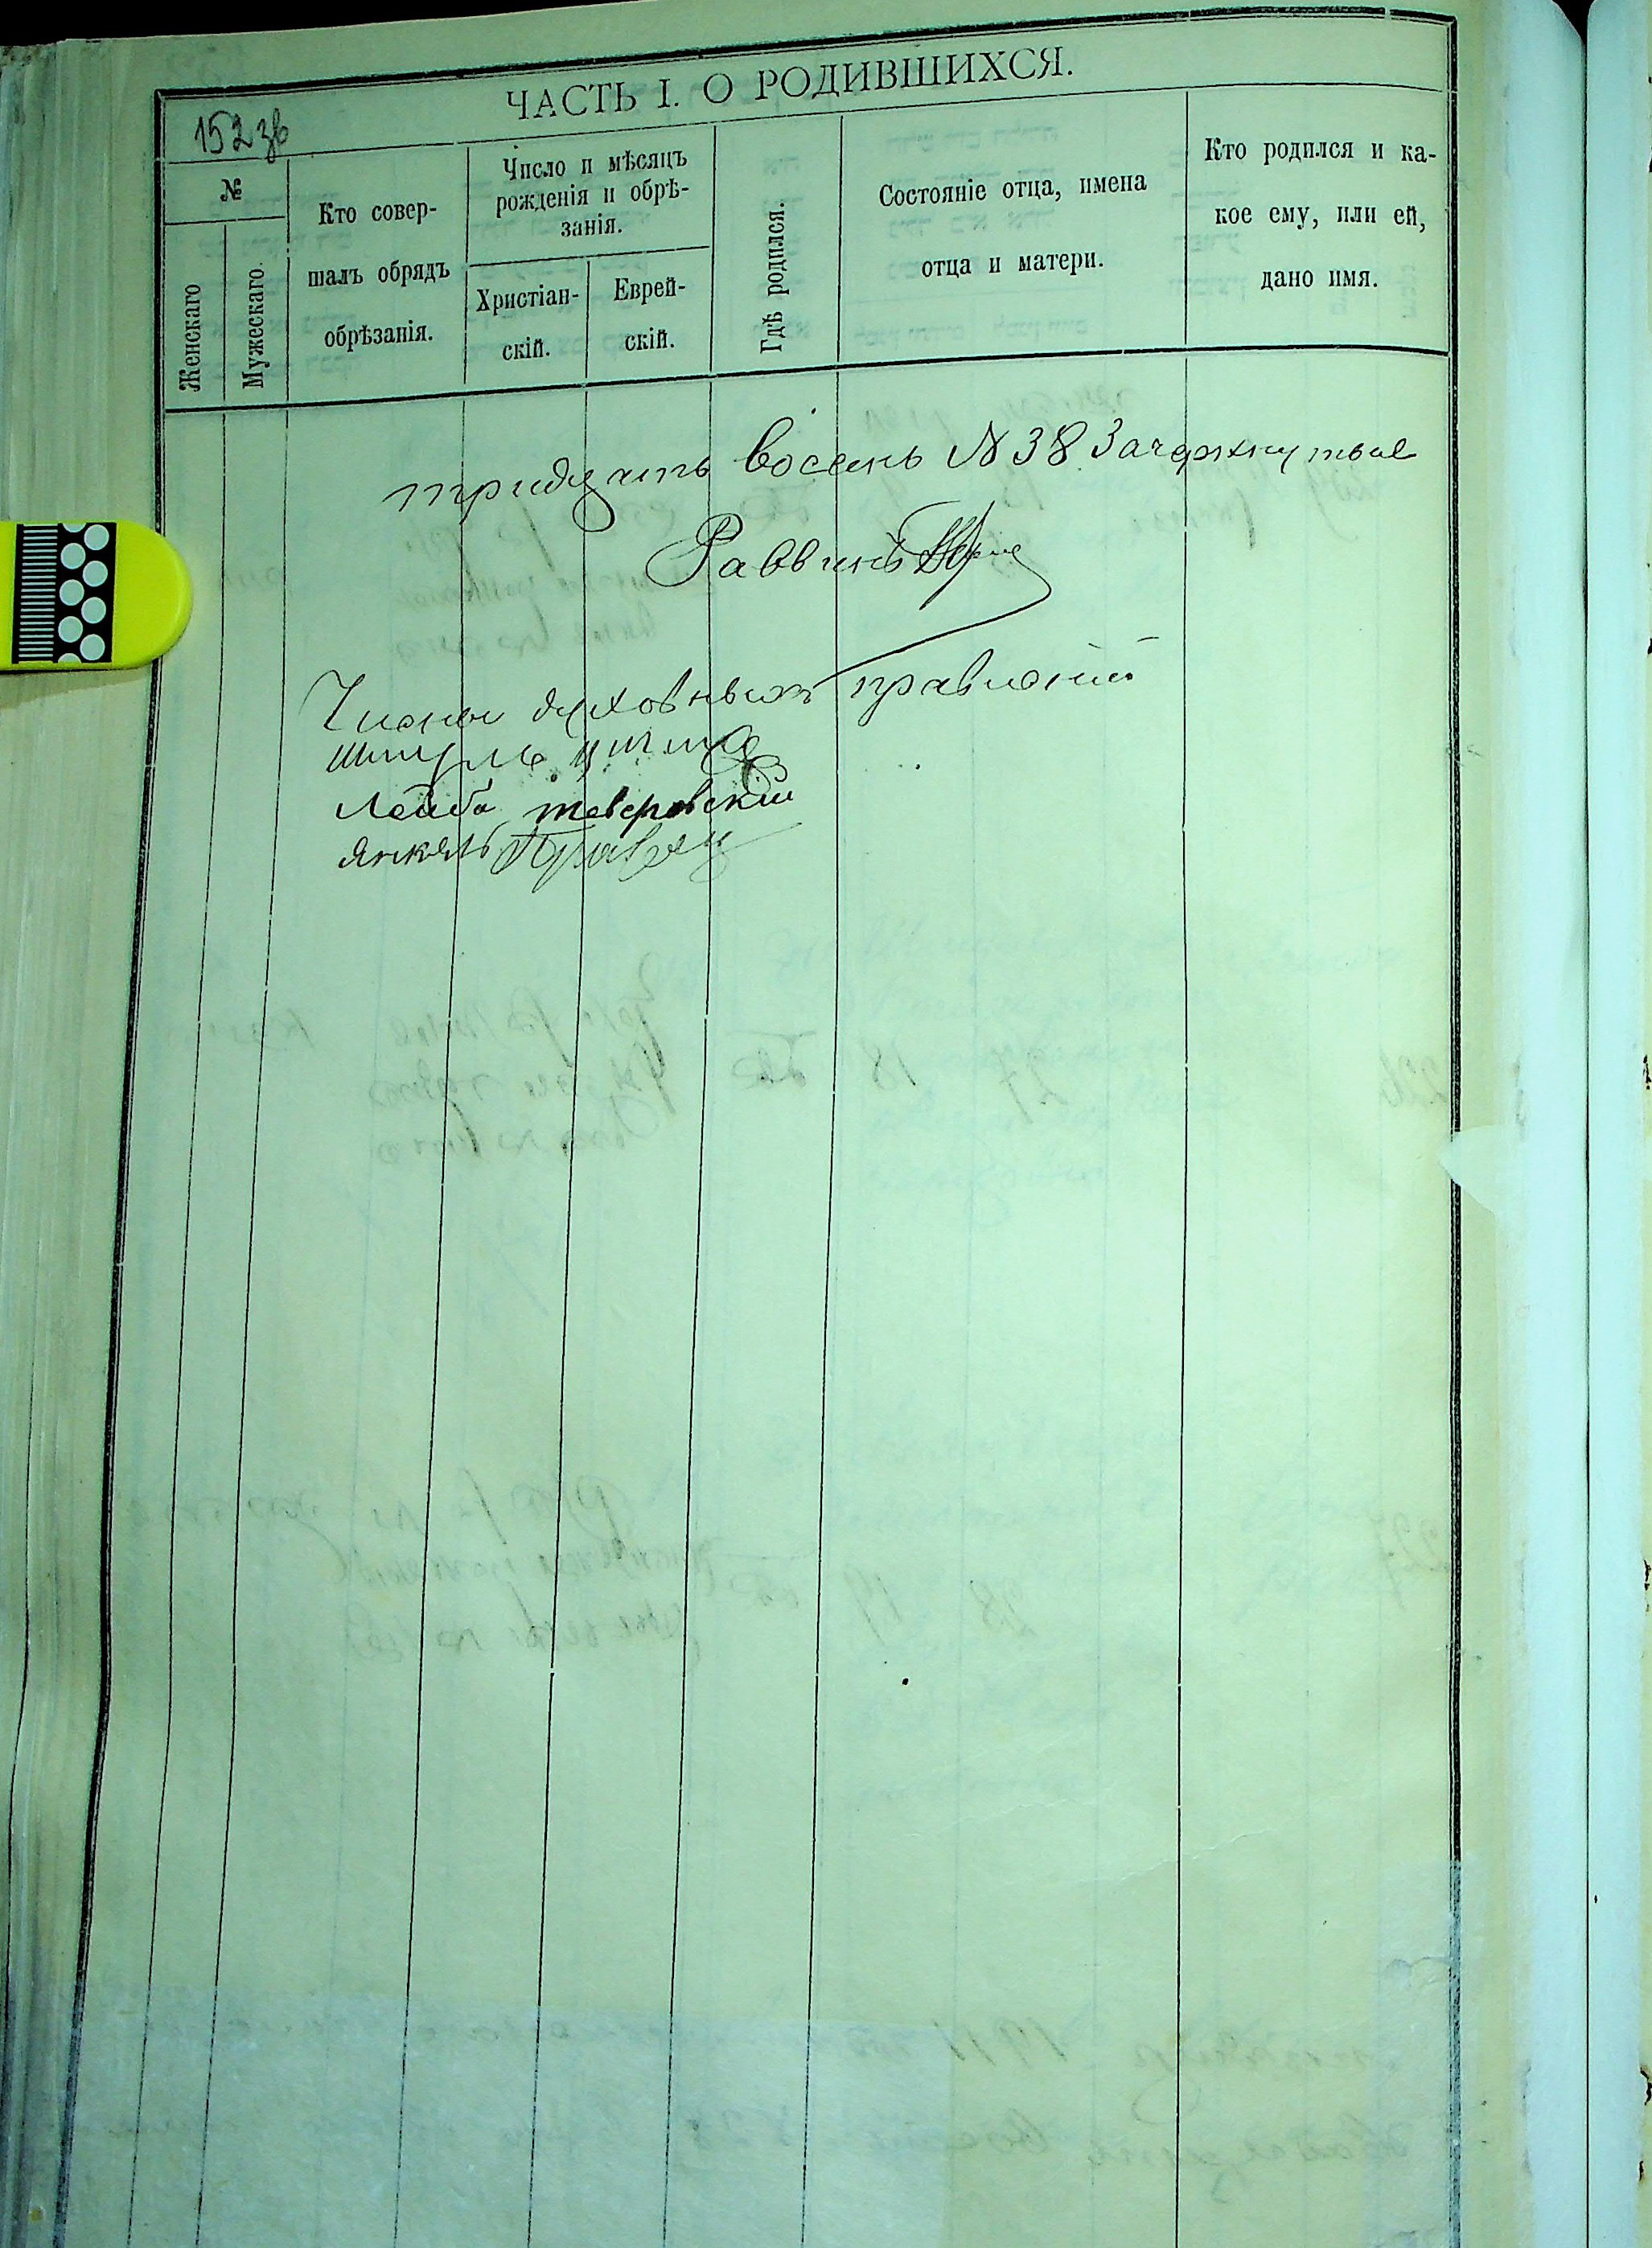 ЧАСТЬ I. О РОДИВШИХСЯ.
152 зв
№
Женскаго
Мужескаго.
Кто совер-
шалъ обрядъ
обрѣзанія.
Число и мѣсяцъ
рожденія и обрѣ-
занія.
Христіан-
скій.
Еврей-
скій.
Гдѣ родился.
Состояніе отца, имена
отца и матери.
Кто родился и ка-
кое ему, или ей,
дано имя.
тридцать восемь № 38 Зачеркнутые
Раввинъ
Члены духовныхъ правленій
Шмуль
Лейба тверовскій
Янкель